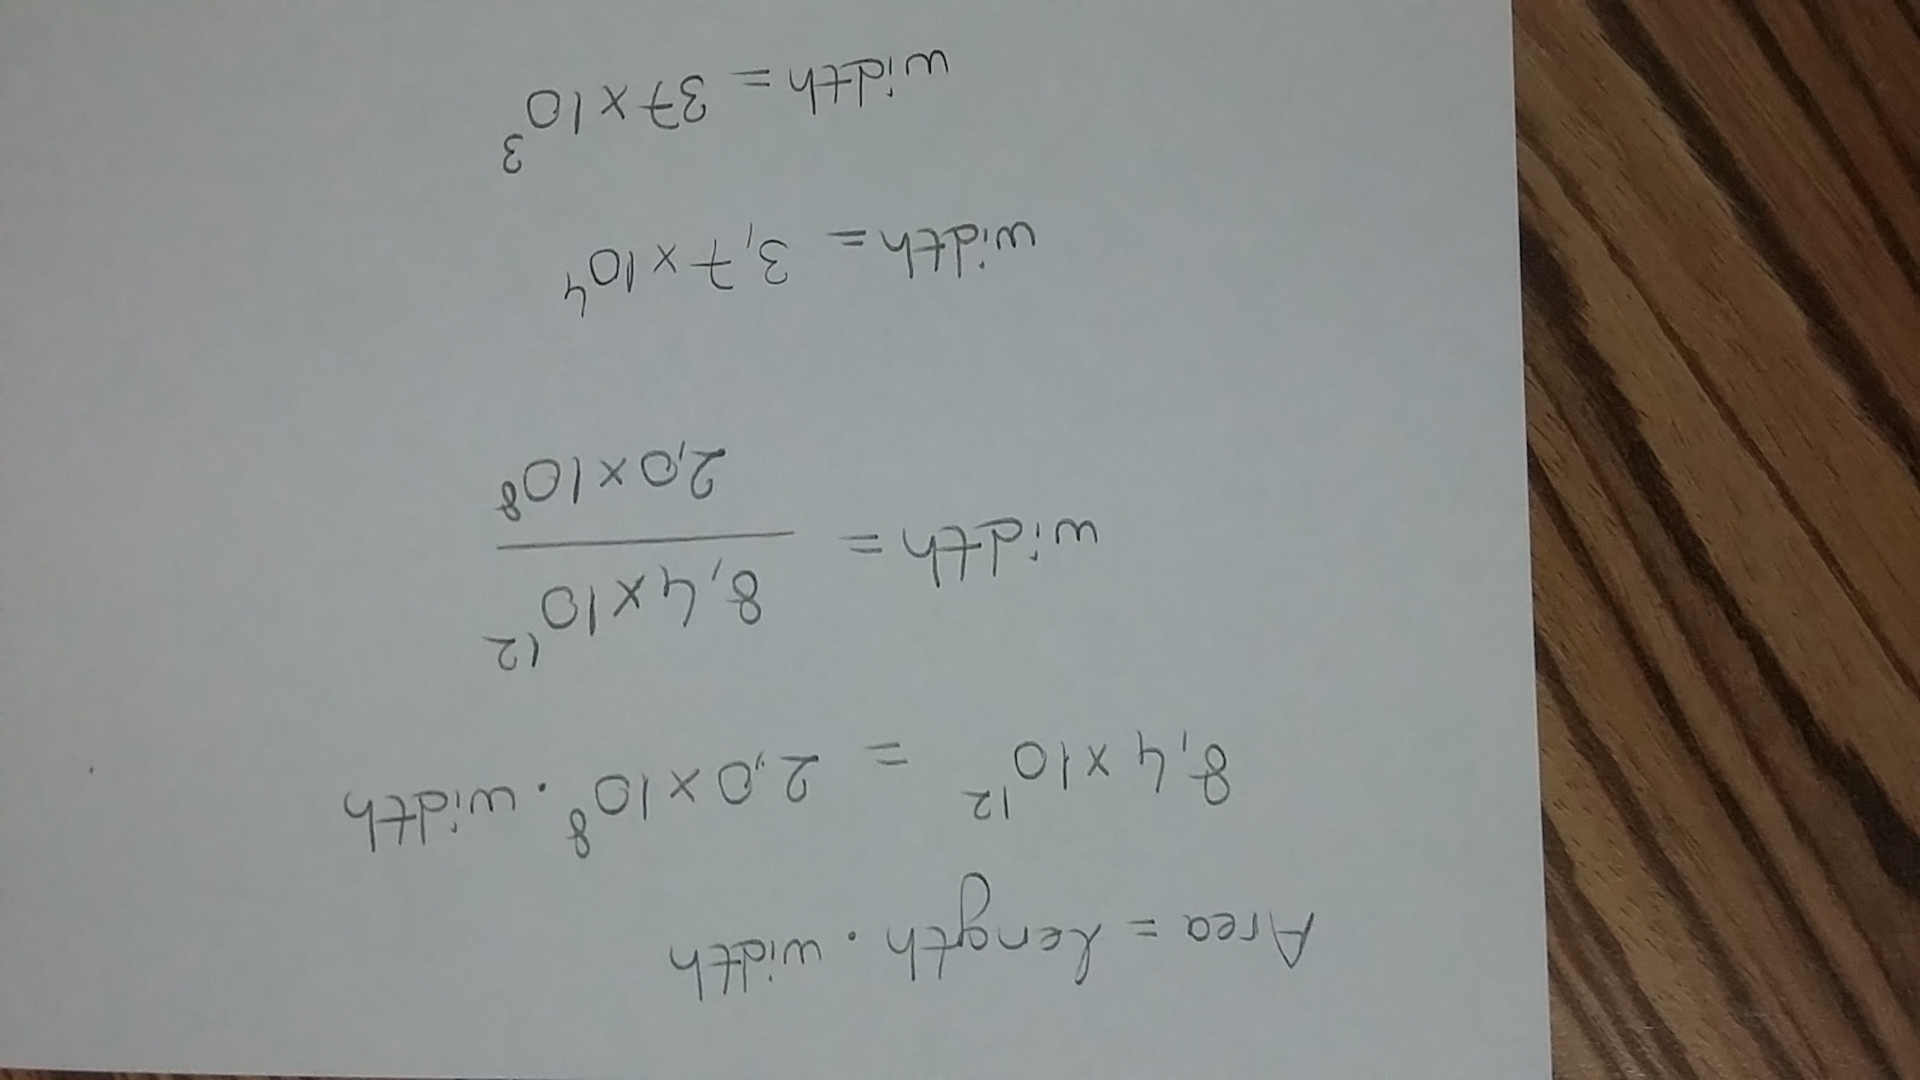 Area = Length . width
8,4 x 10^12 = 2,0 x 10^8 . width
width = 8,4 x 10^12 / 2,0 x 10^8
width = 3,7 x 10^4
width = 37 x 10^3